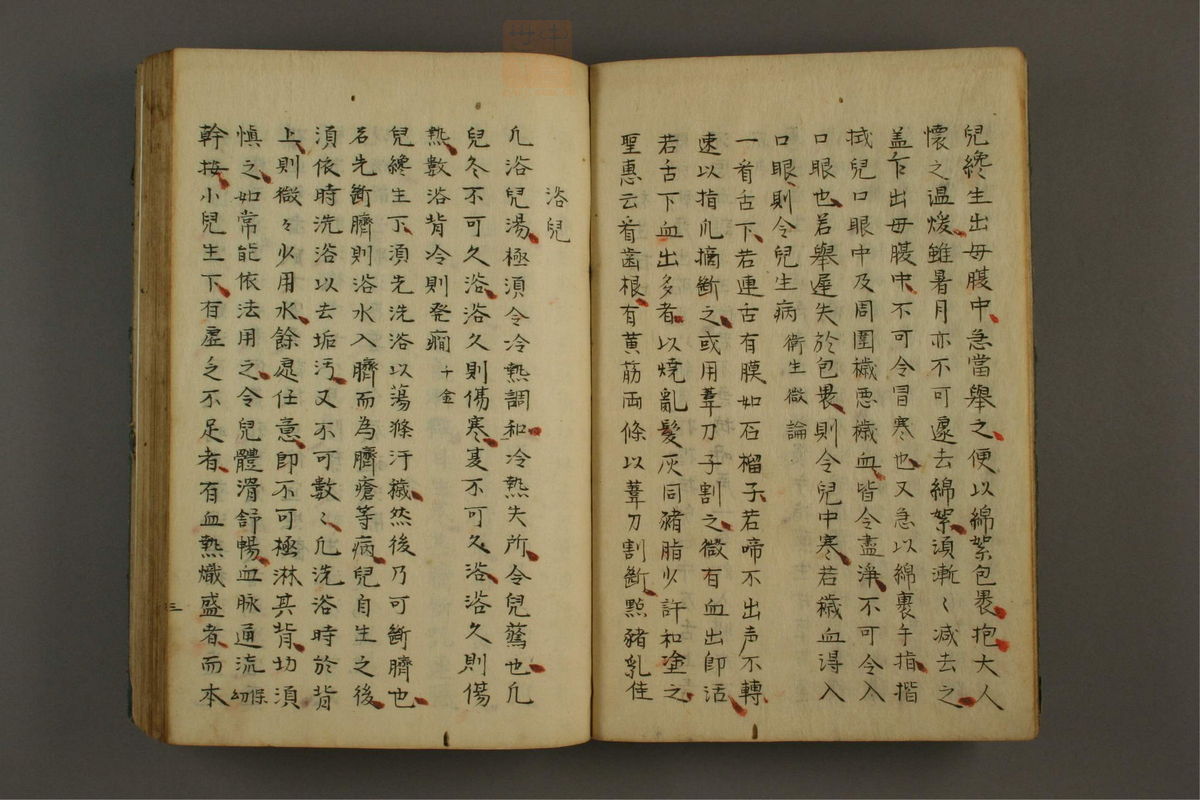 兒纔生出母腹中急當舉之便以綿絮包褁抱大人
懷之温煖雖暑月亦不可遽去綿絮湏漸〻减去之
盖乍出母腹中不可令冒寒也又急以綿裹手指揩
拭兒口眼中及周圍穢悪穢血皆令盡淨不可令入
口眼也若舉遲失於包褁則令兒中寒若穢血淂入
口眼則令兒生病 衛生微論
一看舌下若連舌有膜如石榴子若啼不出声不轉
速以指爪摘斷之或用葦刀子割之微有血出即活
若舌下血出多者以燒亂髮灰同豬脂少許和塗之
聖惠云看齒根有黄筋両條以葦刀割斷㸃豬乳佳
浴兒
凡浴兒湯極湏令冷熱調和冷熱失所令兒驚也凡
兒冬不可久浴浴久則傷寒夏不可久浴浴久則傷
熱數浴背冷則發癇 千金
兒纔生下湏先洗浴以蕩滌汙穢然後乃可斷臍也
若先斷臍則浴水入臍而為臍瘡等病兒自生之後
湏依時洗浴以去垢汚又不可數〻凡洗浴時於背
上則微々少用水餘處任意即不可極淋其背切湏
愼之如常能依法用之令兒體滑舒暢血脉通流 幼保
幹按小兒生下有虚乏不足者有血熱熾盛者而本
三